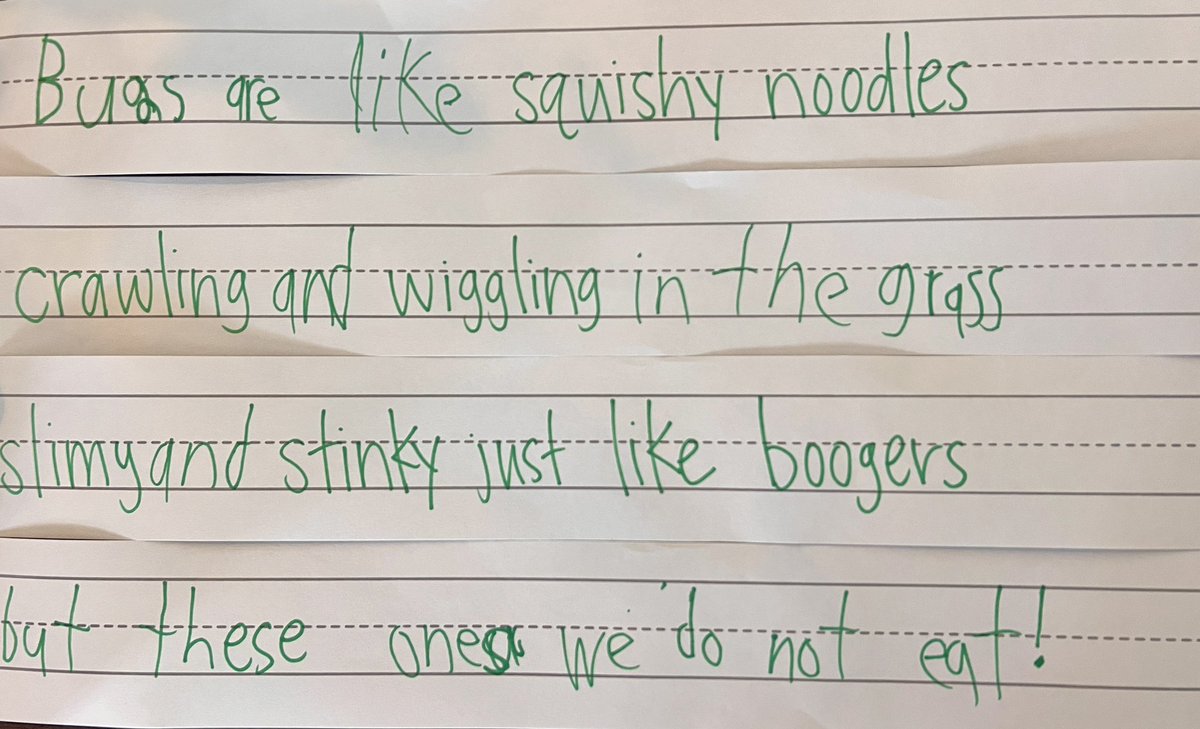 Bugs are like squishy noodles
crawling and wiggling in the grass
slimy and stinky just like boogers
but these ones we do not eat!